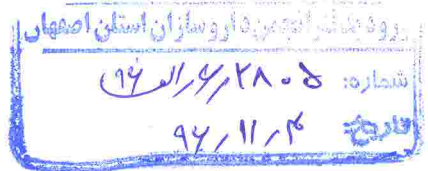 ورود به دفتر انجمن داروسازان استان اصفهان
شماره: ۲۸۰۵/۶/الف/۹۶
تاریخ: ۹۶/۱۱/۴